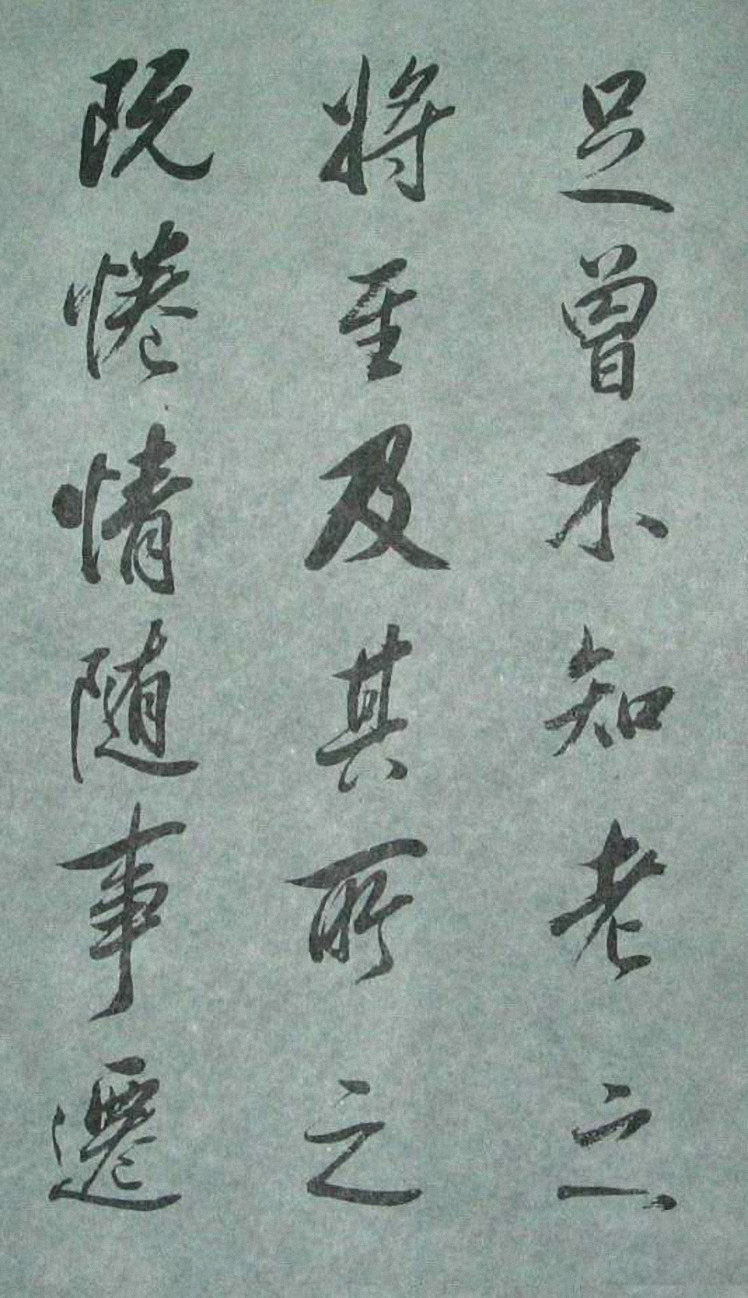 足曾不知老之
將至及其所之
既惓情随事遷